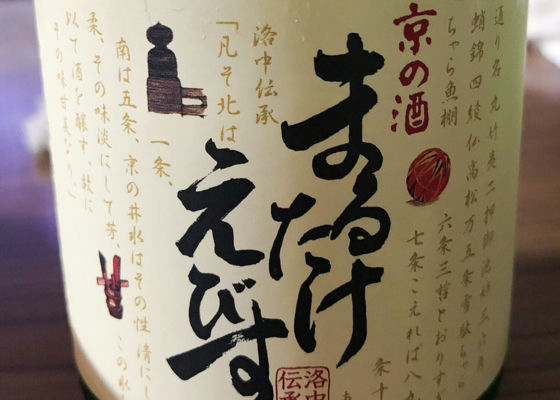 通り名 丸竹夷二押御池姉三六角
蛸錦四綾仏高松万五条雪駄ちゃら
ちゃら魚棚 六条三哲とおりすぎ
七条こえれば八九
条十
京の酒
まるたけ
えびす
洛中伝承
洛中伝承
「凡そ北は一条、
南は五条、京の井水はその性清にし
柔、その味淡にして芳、この水
以て酒を醸す、故に
その味甘美なり。」